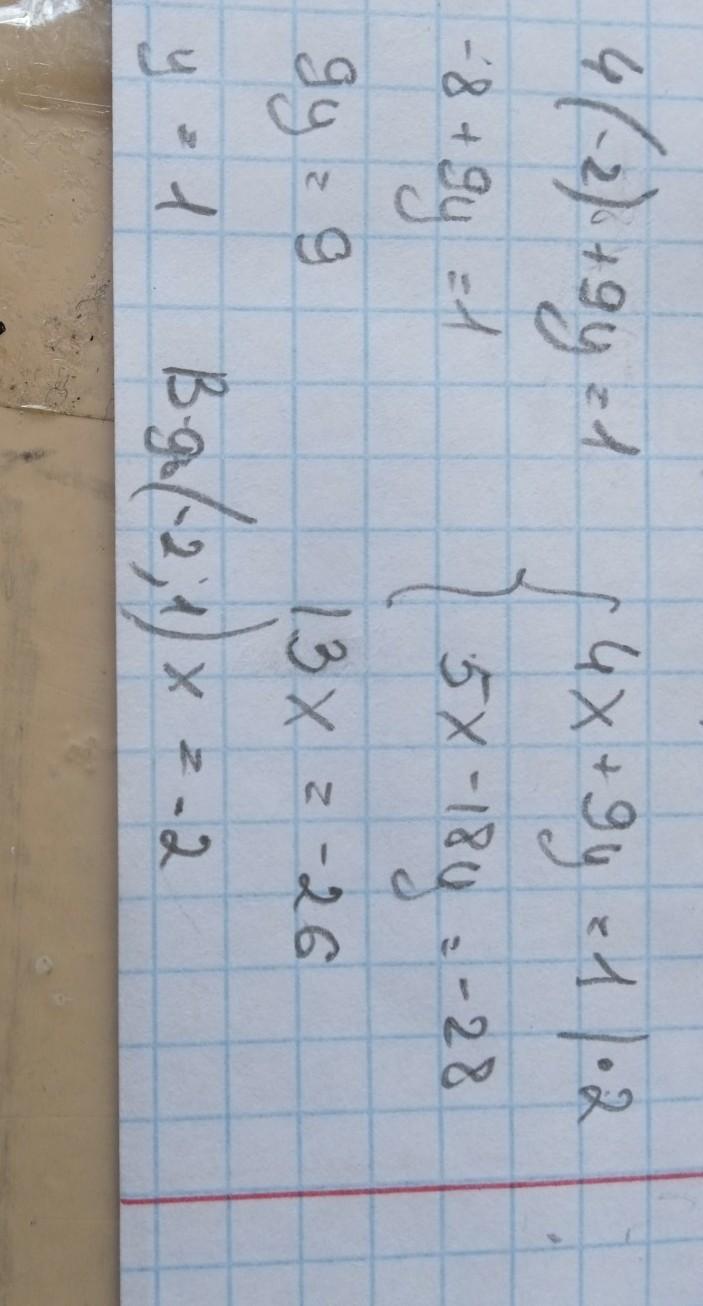 4(-2)+9y=1
-8+9y=1
9y=9
y=1
{4x+9y=1 |·2
5x-18y=-28
13x=-26
x=-2
В-дь (-2;1)